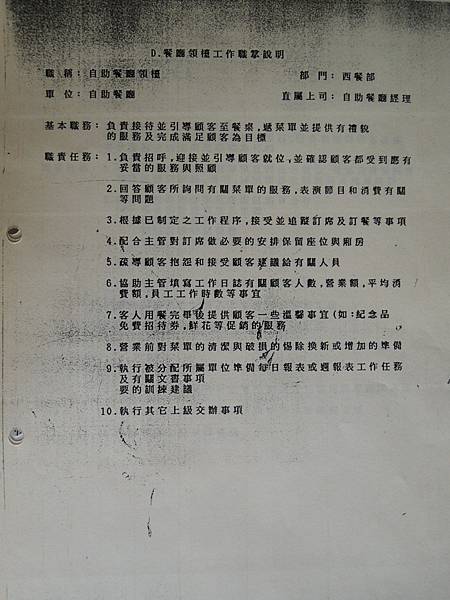 D.餐廳領檯工作職掌說明
職 稱：自助餐廳領檯 部 門：西餐部
單 位：自助餐廳 直屬上司：自助餐廳經理
基本職務：負責接待並引導顧客至餐桌，遞菜單並提供有禮貌
的服務及完成滿足顧客為目標
職責任務：1.負責招呼，迎接並引導顧客就位，並確認顧客都受到應有
妥當的服務與照顧
2.回答顧客所詢問有關菜單的服務，表演節目和消費有關
等問題
3.根據已制定之工作程序，接受並追蹤訂席及訂餐等事項
4.配合主管對訂席做必要的安排保留座位與廂房
5.疏導顧客抱怨和接受顧客建議給有關人員
6.協助主管填寫工作日誌有關顧客人數，營業額，平均消
費額，員工工作時數等事宜
7.客人用餐完畢後提供顧客一些溫馨事宜(如:紀念品
免費招待券，鮮花等促銷的服務
8.營業前對菜單的清潔與破損的剔除換新或增加的準備
9.執行被分配所屬單位準備每日報表或週報表工作任務
及有關文書事項
要的訓練建議
10.執行其它上級交辦事項